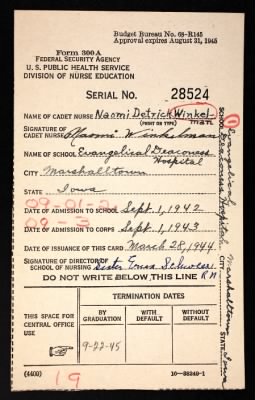 Budget Bureau No. 68-R145
Approval expires August 31, 1945
Form 300A
FEDERAL SECURITY AGENCY
U. S. PUBLIC HEALTH SERVICE
DIVISION OF NURSE EDUCATION
SERIAL No. 28524
NAME OF CADET NURSE Naomi Detrick Winkel-
(PRINT OR TYPE) man
SIGNATURE OF
CADET NURSE Naomi Winkelman
NAME OF SCHOOL Evangelical Deaconess
Hospital
CITY Marshalltown
STATE Iowa
09-01-2
DATE OF ADMISSION TO SCHOOL Sept. 1, 1942
09-3
DATE OF ADMISSION TO CORPS Sept. 1, 1943
DATE OF ISSUANCE OF THIS CARD March 28, 1944
SIGNATURE OF DIRECTOR
OF SCHOOL OF NURSING Sister Erna Schweer R.N.
DO NOT WRITE BELOW THIS LINE
THIS SPACE FOR
CENTRAL OFFICE
USE
TERMINATION DATES
BY
GRADUATION
WITH
DEFAULT
WITHOUT
DEFAULT
9-22-45
(4400)
19
16-38249-1
1
SCHOOL Evangelical Deaconess Hospital
CITY Marshalltown
STATE Iowa